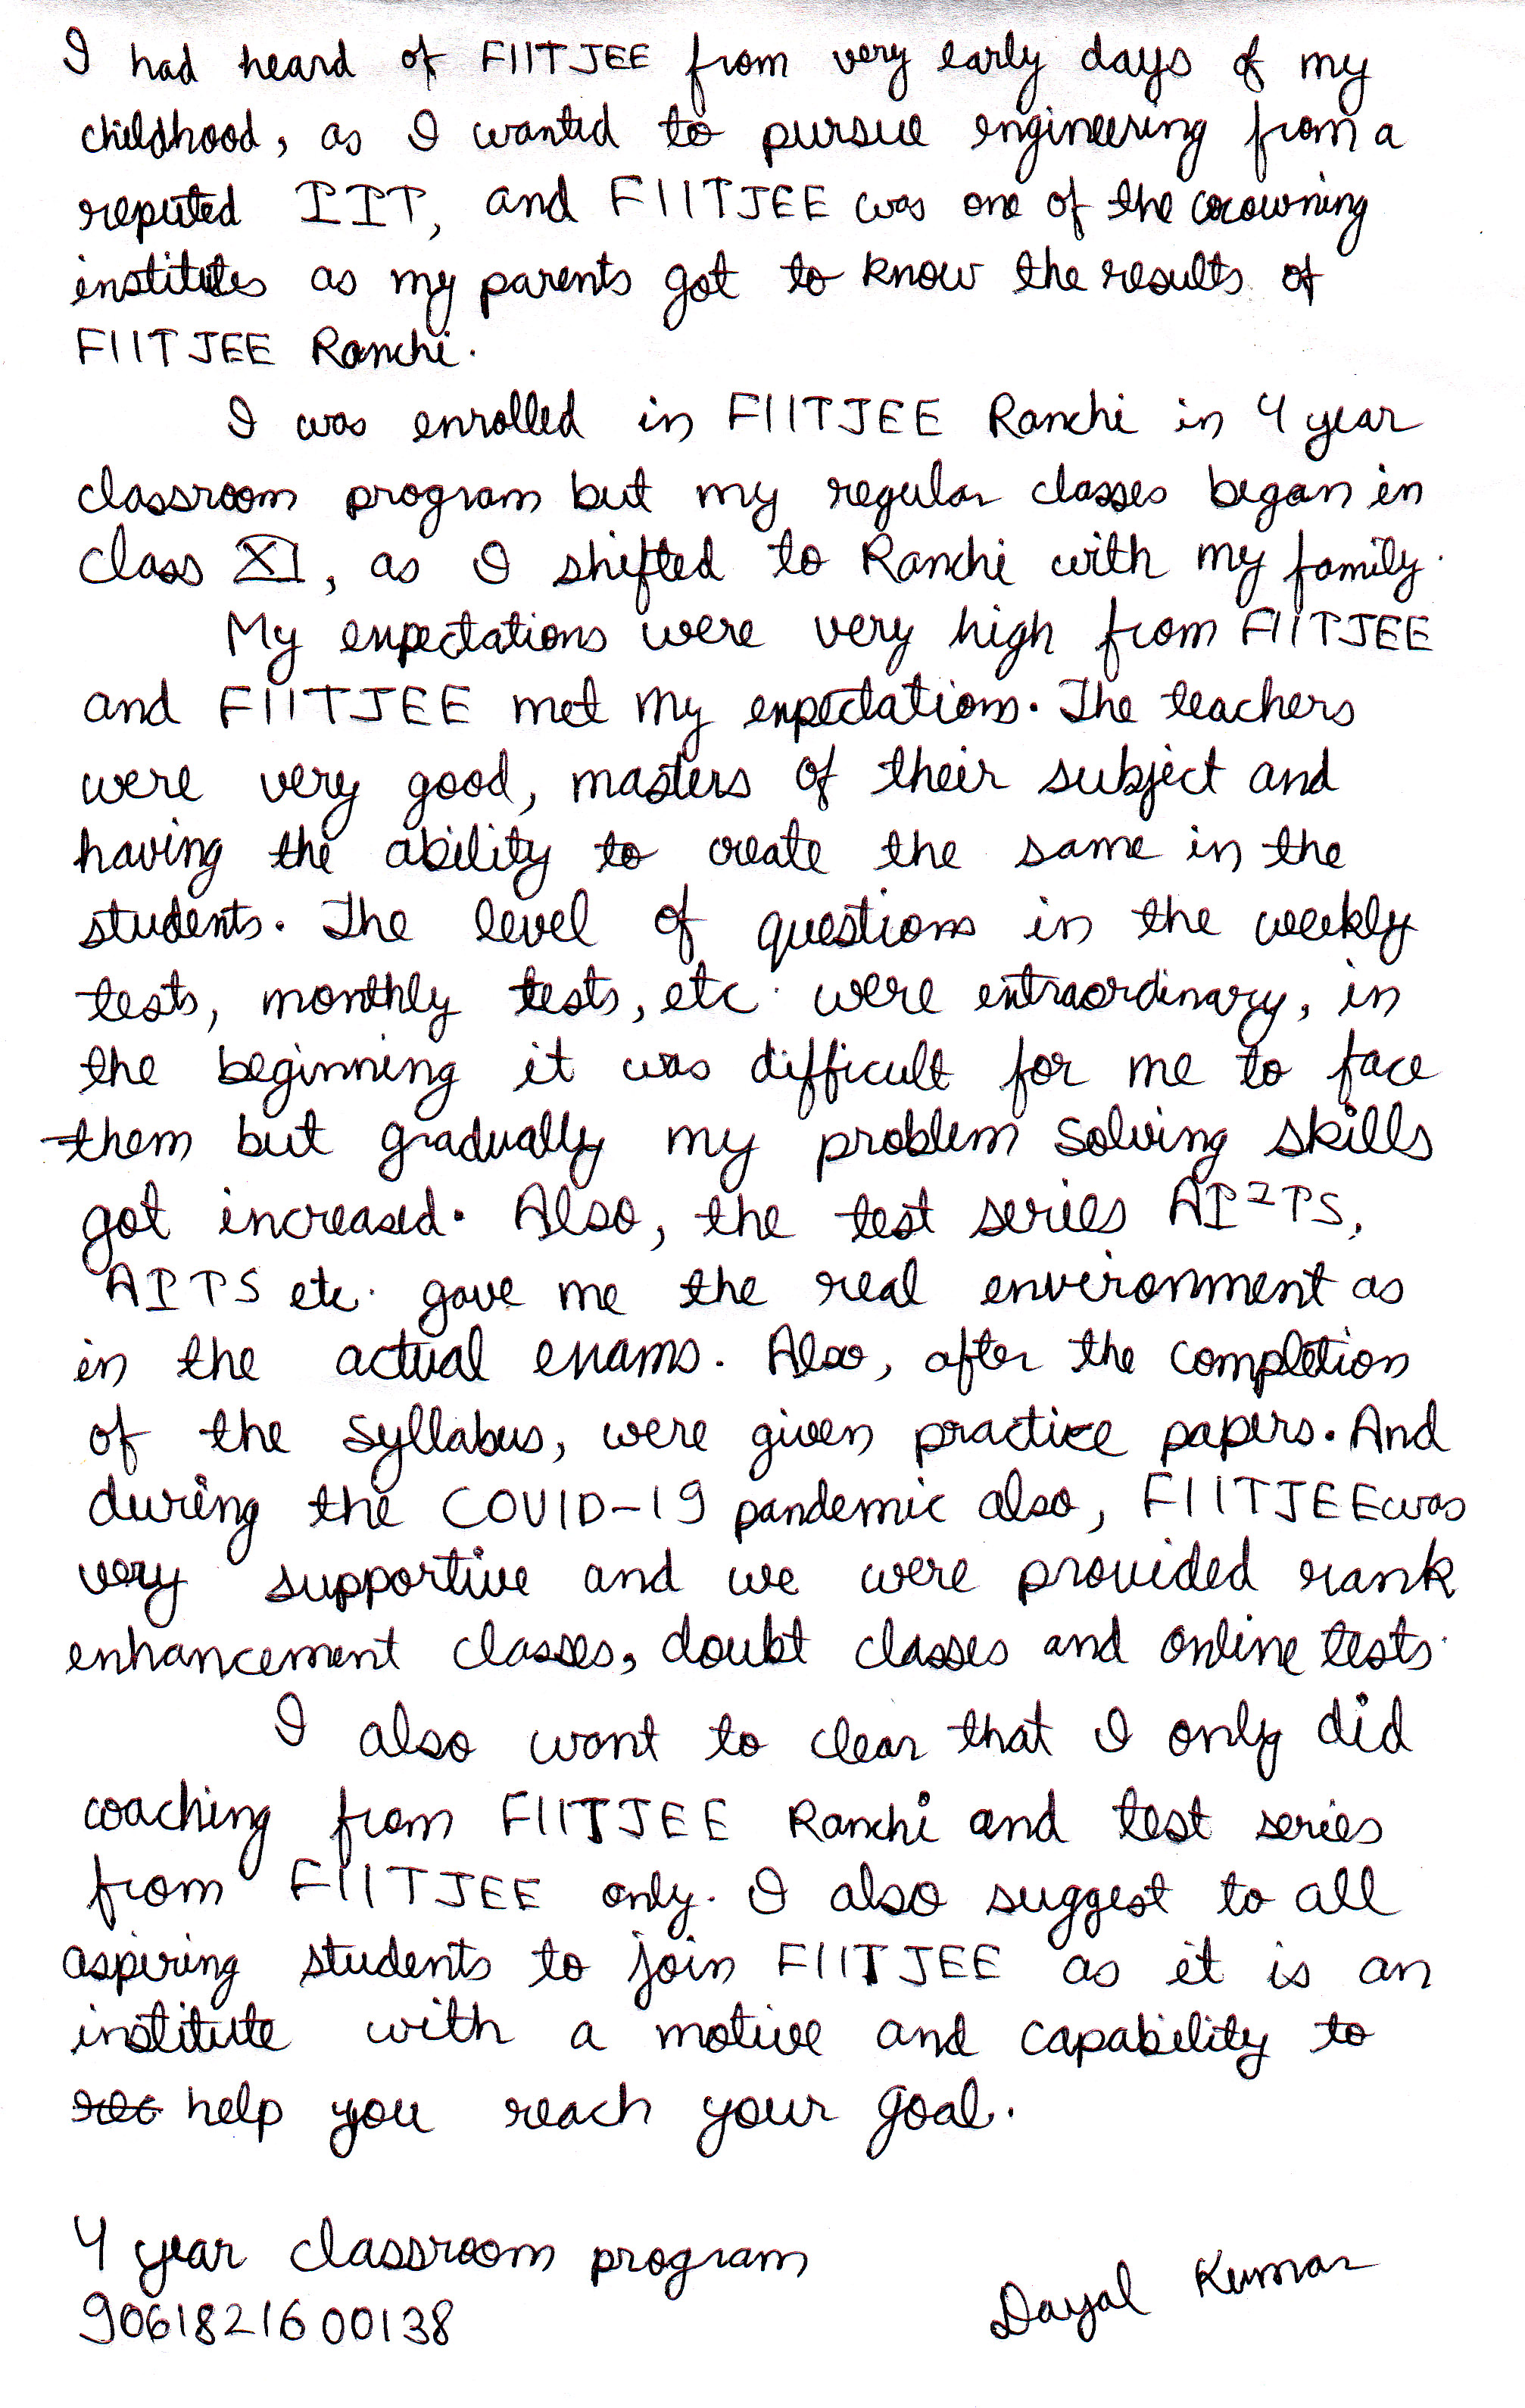 I had heard of FIITJEE from very early days of my
childhood, as I wanted to pursue engineering from a
reputed IIT, and FIITJEE was one of the crowning
institutes as my parents got to know the results of
FIITJEE Ranchi.
I was enrolled in FIITJEE Ranchi in 4 year
classroom program but my regular classes began in
class XI, as I shifted to Ranchi with my family.
My expectations were very high from FIITJEE
and FIITJEE met my expectations. The teachers
were very good, masters of their subject and
having the ability to create the same in the
students. The level of questions in the weekly
tests, monthly tests, etc. were extraordinary, in
the beginning it was difficult for me to face
them but gradually my problem solving skills
got increased. Also, the test series AI²TS,
AITS etc. gave me the real environment as
in the actual exams. Also, after the completion
of the syllabus, were given practice papers. And
during the COVID-19 pandemic also, FIITJEE was
very supportive and we were provided rank
enhancement classes, doubt classes and online tests.
I also want to clear that I only did
coaching from FIITJEE Ranchi and test series
from FIITJEE only. I also suggest to all
aspiring students to join FIITJEE as it is an
institute with a motive and capability to
help you reach your goal.
4 year classroom program
9061821600138
Dayal Kumar